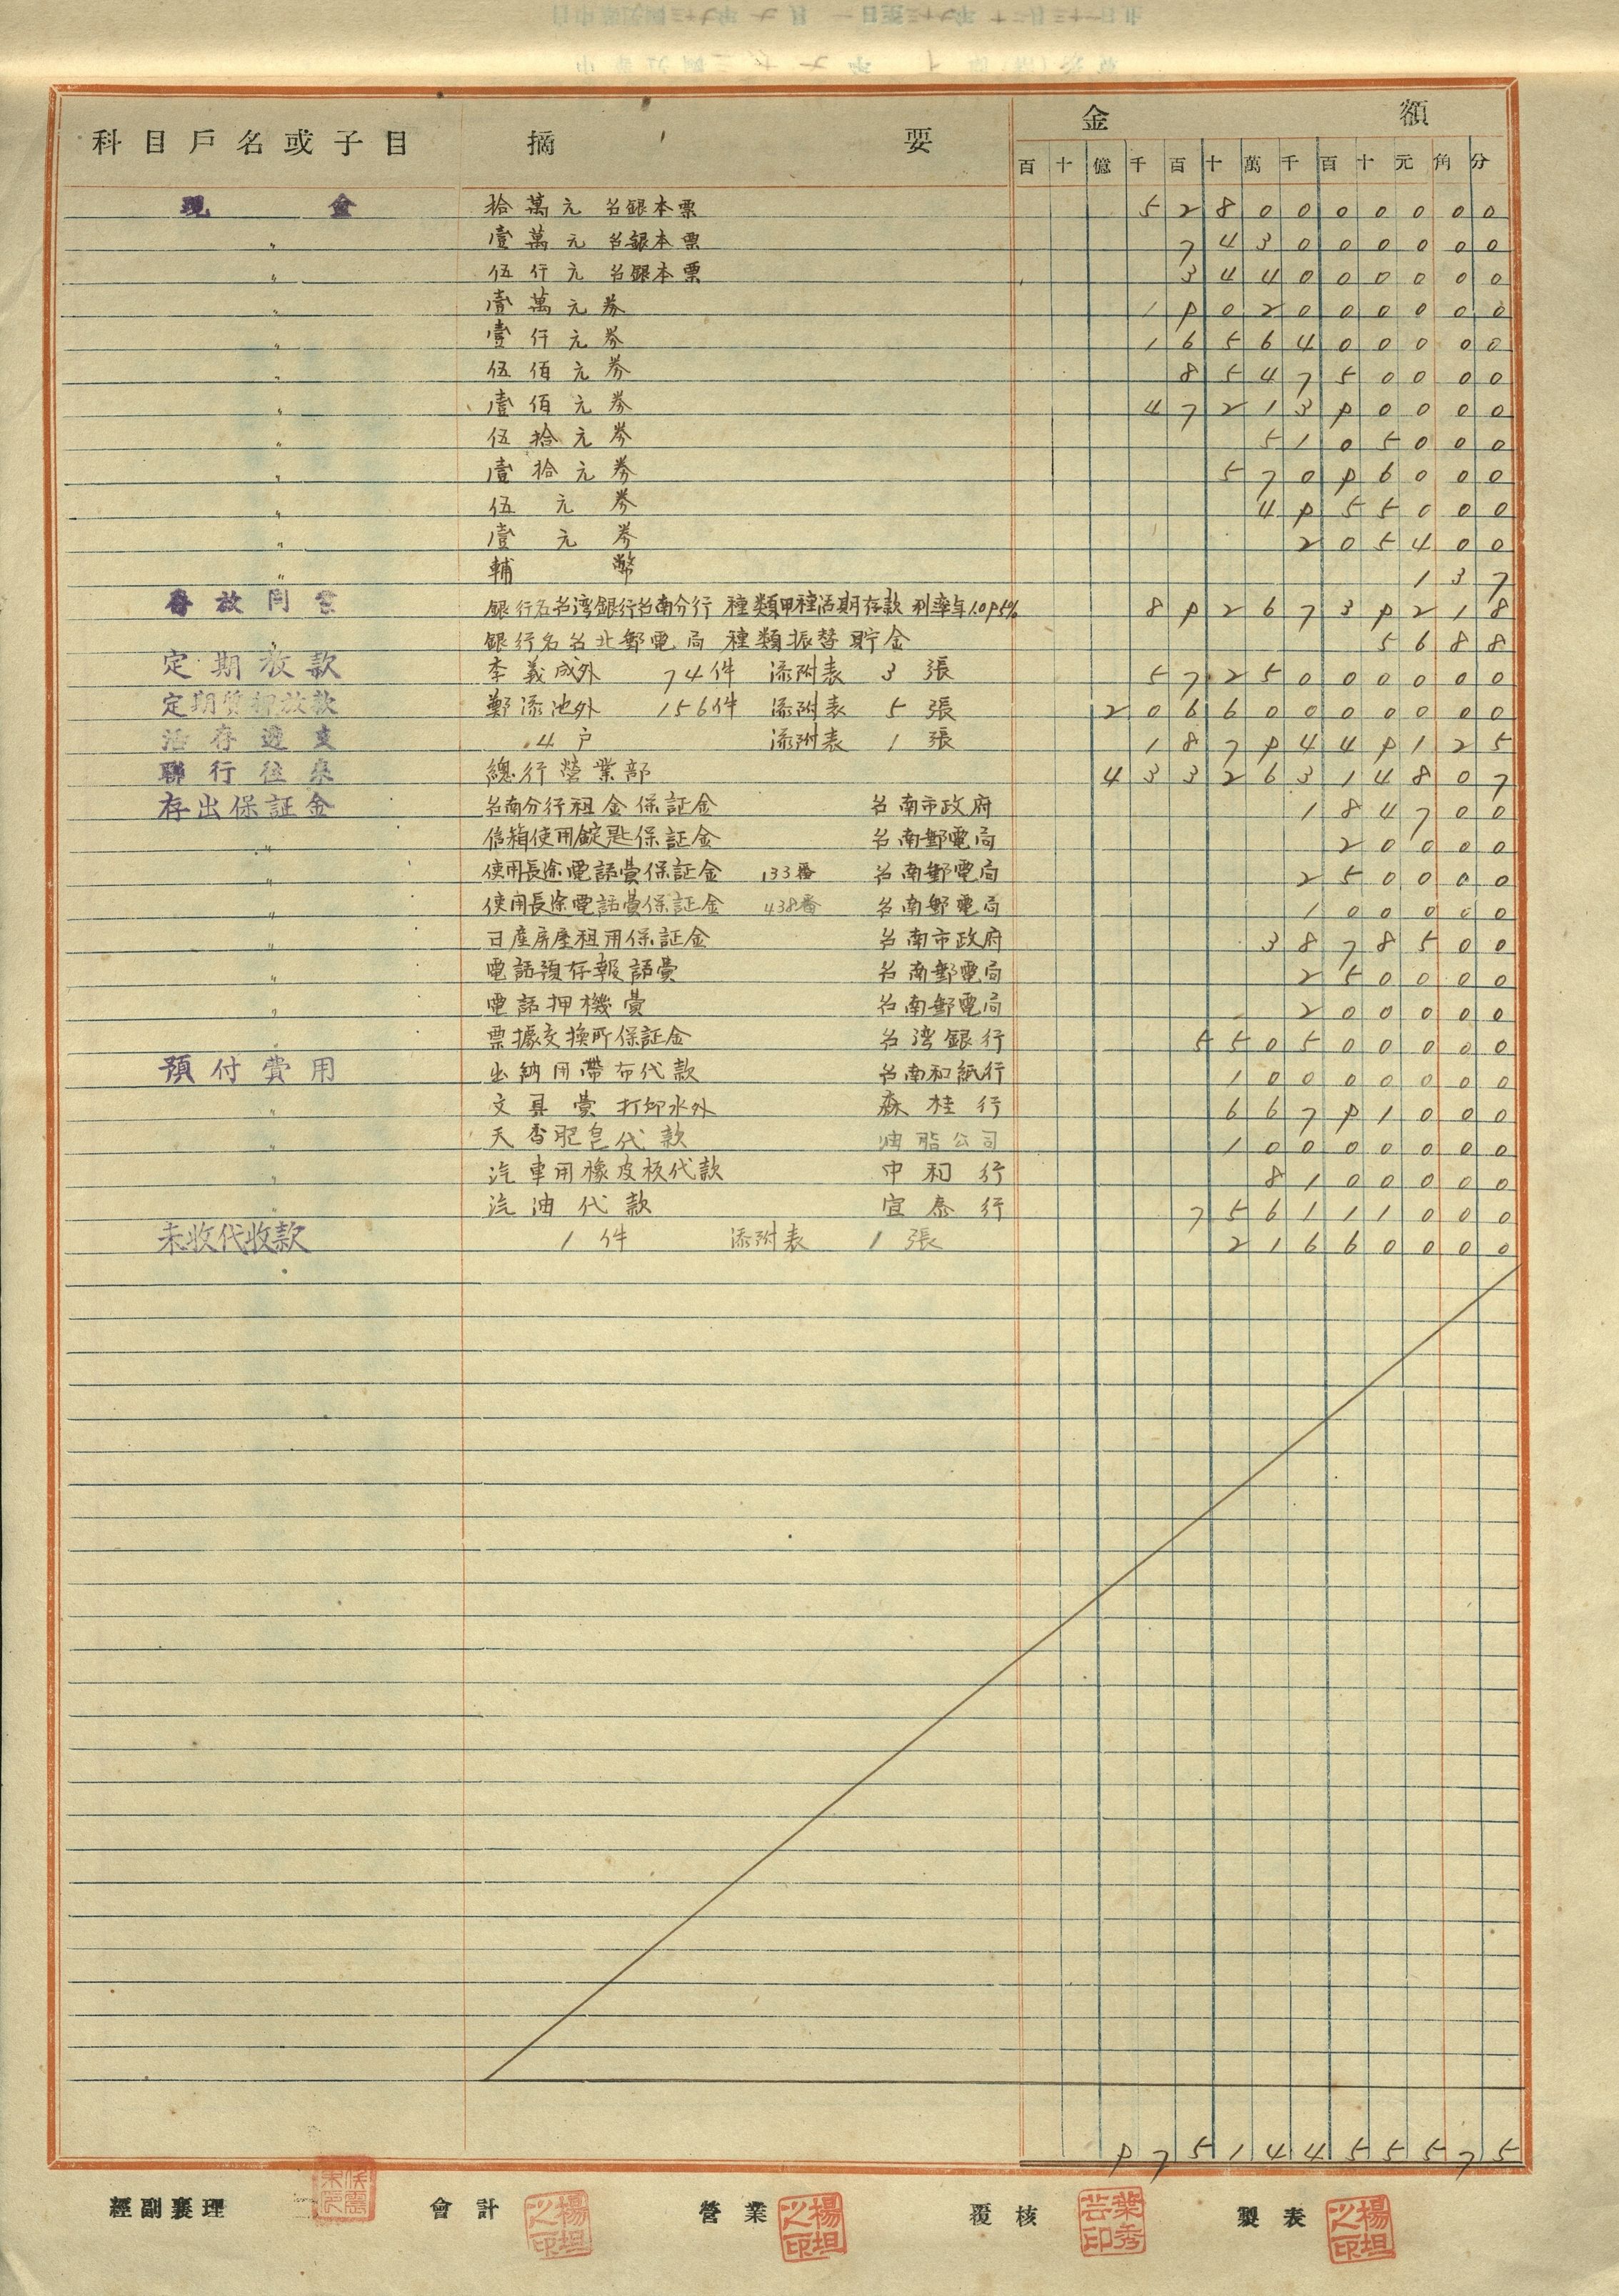 科目戶名或子目 摘 要 金 額
百 十 億 千 百 十 萬 千 百 十 元 角 分
現 金 拾萬元 台銀本票 5 2 8 0 0 0 0 0 0 0
〃 壹萬元 台銀本票 7 4 3 0 0 0 0 0 0
〃 伍仟元 台銀本票 3 4 4 0 0 0 0 0 0
〃 壹萬元券 1 9 0 2 0 0 0 0 0 0
〃 壹仟元券 1 6 5 6 4 0 0 0 0 0
〃 伍佰元券 8 5 4 7 5 0 0 0 0
〃 壹佰元券 4 7 2 1 3 9 0 0 0 0
〃 伍拾元券 5 1 0 5 0 0 0
〃 壹拾元券 5 7 0 9 6 0 0 0
〃 伍元券 4 9 5 5 0 0 0
〃 壹元券 2 0 5 4 0 0
〃 輔幣 1 3 7
存放同業 銀行名台湾銀行台南分行 種類甲種活期存款 利率年1.095% 8 9 2 6 7 3 9 2 1 8
〃 銀行名台北郵電局 種類振替貯金 5 6 8 8
定期放款 李義成外 74件 添附表 3 張 5 7 2 5 0 0 0 0 0 0
定期質押放款 鄭添池外 156件 添附表 5 張 2 0 6 6 0 0 0 0 0 0 0
活存透支 4戶 添附表 1 張 1 8 7 9 4 4 9 1 2 5
聯行往來 總行營業部 4 3 3 2 6 3 1 4 8 0 7
存出保証金 台南分行租金保証金 台南市政府 1 8 4 7 0 0
〃 信箱使用錠匙保証金 台南郵電局 2 0 0 0 0
〃 使用長途電話費保証金 133番 台南郵電局 2 5 0 0 0 0
〃 使用長途電話費保証金 438番 台南郵電局 1 0 0 0 0 0
〃 日產房屋租用保証金 台南市政府 3 8 7 8 5 0 0
〃 電話預存報話費 台南郵電局 2 5 0 0 0 0
〃 電話押機費 台南郵電局 2 0 0 0 0 0
〃 票據交換所保証金 台湾銀行 5 5 0 5 0 0 0 0 0
預付費用 出納用帶布代款 台南和紙行 1 0 0 0 0 0 0 0
〃 文具費 打印水外 森桂行 6 6 7 9 1 0 0 0
〃 天香肥皂代款 油脂公司 1 0 0 0 0 0 0 0
〃 汽車用橡皮板代款 中和行 8 1 0 0 0 0 0
〃 汽油代款 宜泰行 7 5 6 1 1 1 0 0 0
未收代收款 1 件 添附表 1 張 2 1 6 6 0 0 0 0
9 7 5 1 4 4 5 5 5 7 5
經副襄理 會計 楊坦之印 營業 楊坦之印 覆核 葉秀芸印 製表 楊坦之印